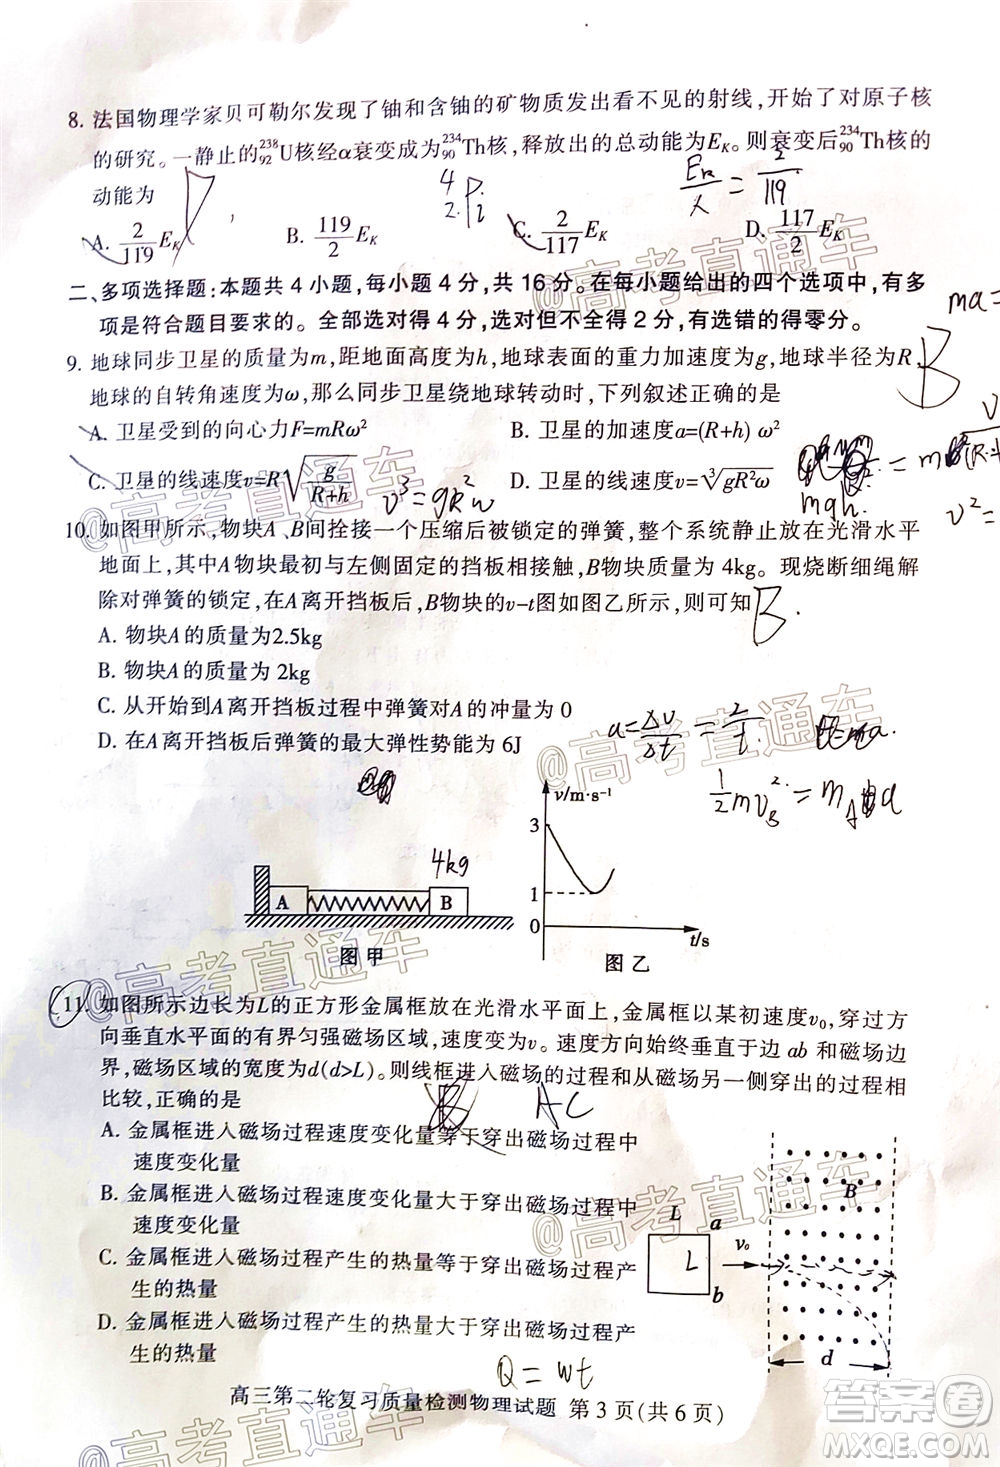 8. 法国物理学家贝可勒尔发现了铀和含铀的矿物质发出看不见的射线，开始了对原子核
的研究。一静止的²³⁸₉₂U核经α衰变成为²³⁴₉₀Th核，释放出的总动能为E_K。则衰变后²³⁴₉₀Th核的
动能为
4
2
E_k/入 = 2/119
A. 2/119 E_K B. 119/2 E_K C. 2/117 E_K D. 117/2 E_K
二、多项选择题：本题共 4 小题，每小题 4 分，共 16 分。在每小题给出的四个选项中，有多
项是符合题目要求的。全部选对得 4 分，选对但不全的得 2 分，有选错的得零分。
ma=
9. 地球同步卫星的质量为m，距地面高度为h，地球表面的重力加速度为g，地球半径为R，
B
地球的自转角速度为ω，那么同步卫星绕地球转动时，下列叙述正确的是
A. 卫星受到的向心力F=mRω² B. 卫星的加速度a=(R+h) ω²
C. 卫星的线速度v=R√(g/(R+h)) D. 卫星的线速度v=∛(gR²ω)
v³=gR²w
mgh.
v²=
10. 如图甲所示，物块A、B间拴接一个压缩后被锁定的弹簧，整个系统静止放在光滑水平
地面上，其中A物块最初与左侧固定的挡板相接触，B物块质量为 4kg。现烧断细绳解
除对弹簧的锁定，在A离开挡板后，B物块的v-t图如图乙所示，则可知
B.
A. 物块A的质量为2.5kg
B. 物块A的质量为 2kg
C. 从开始到A离开挡板过程中弹簧对A的冲量为 0
D. 在A离开挡板后弹簧的最大弹性势能为 6J
a=Δv/Δt = 2/t
=ma.
½mv_B²=m_A a
4kg
A B
图 甲
v/m·s⁻¹
3
1
0
t/s
图 乙
11. 如图所示边长为L的正方形金属框放在光滑水平面上，金属框以某初速度v₀，穿过方
向垂直水平面的有界匀强磁场区域，速度变为v。速度方向始终垂直于边 ab 和磁场边
界，磁场区域的宽度为d(d>L)。则线框进入磁场的过程和从磁场另一侧穿出的过程相
比较，正确的是
AC
A. 金属框进入磁场过程速度变化量等于穿出磁场过程中
速度变化量
B. 金属框进入磁场过程速度变化量大于穿出磁场过程中
速度变化量
C. 金属框进入磁场过程产生的热量等于穿出磁场过程产
生的热量
D. 金属框进入磁场过程产生的热量大于穿出磁场过程产
生的热量
L
L
a
b
v₀
B
d
Q=wt
高三第二轮复习质量检测物理试题 第 3 页(共 6 页)
@高考直通车
@高考直通车
@高考直通车
@高考直通车
@高考直通车
@高考直通车
答案圈
MXQE.COM